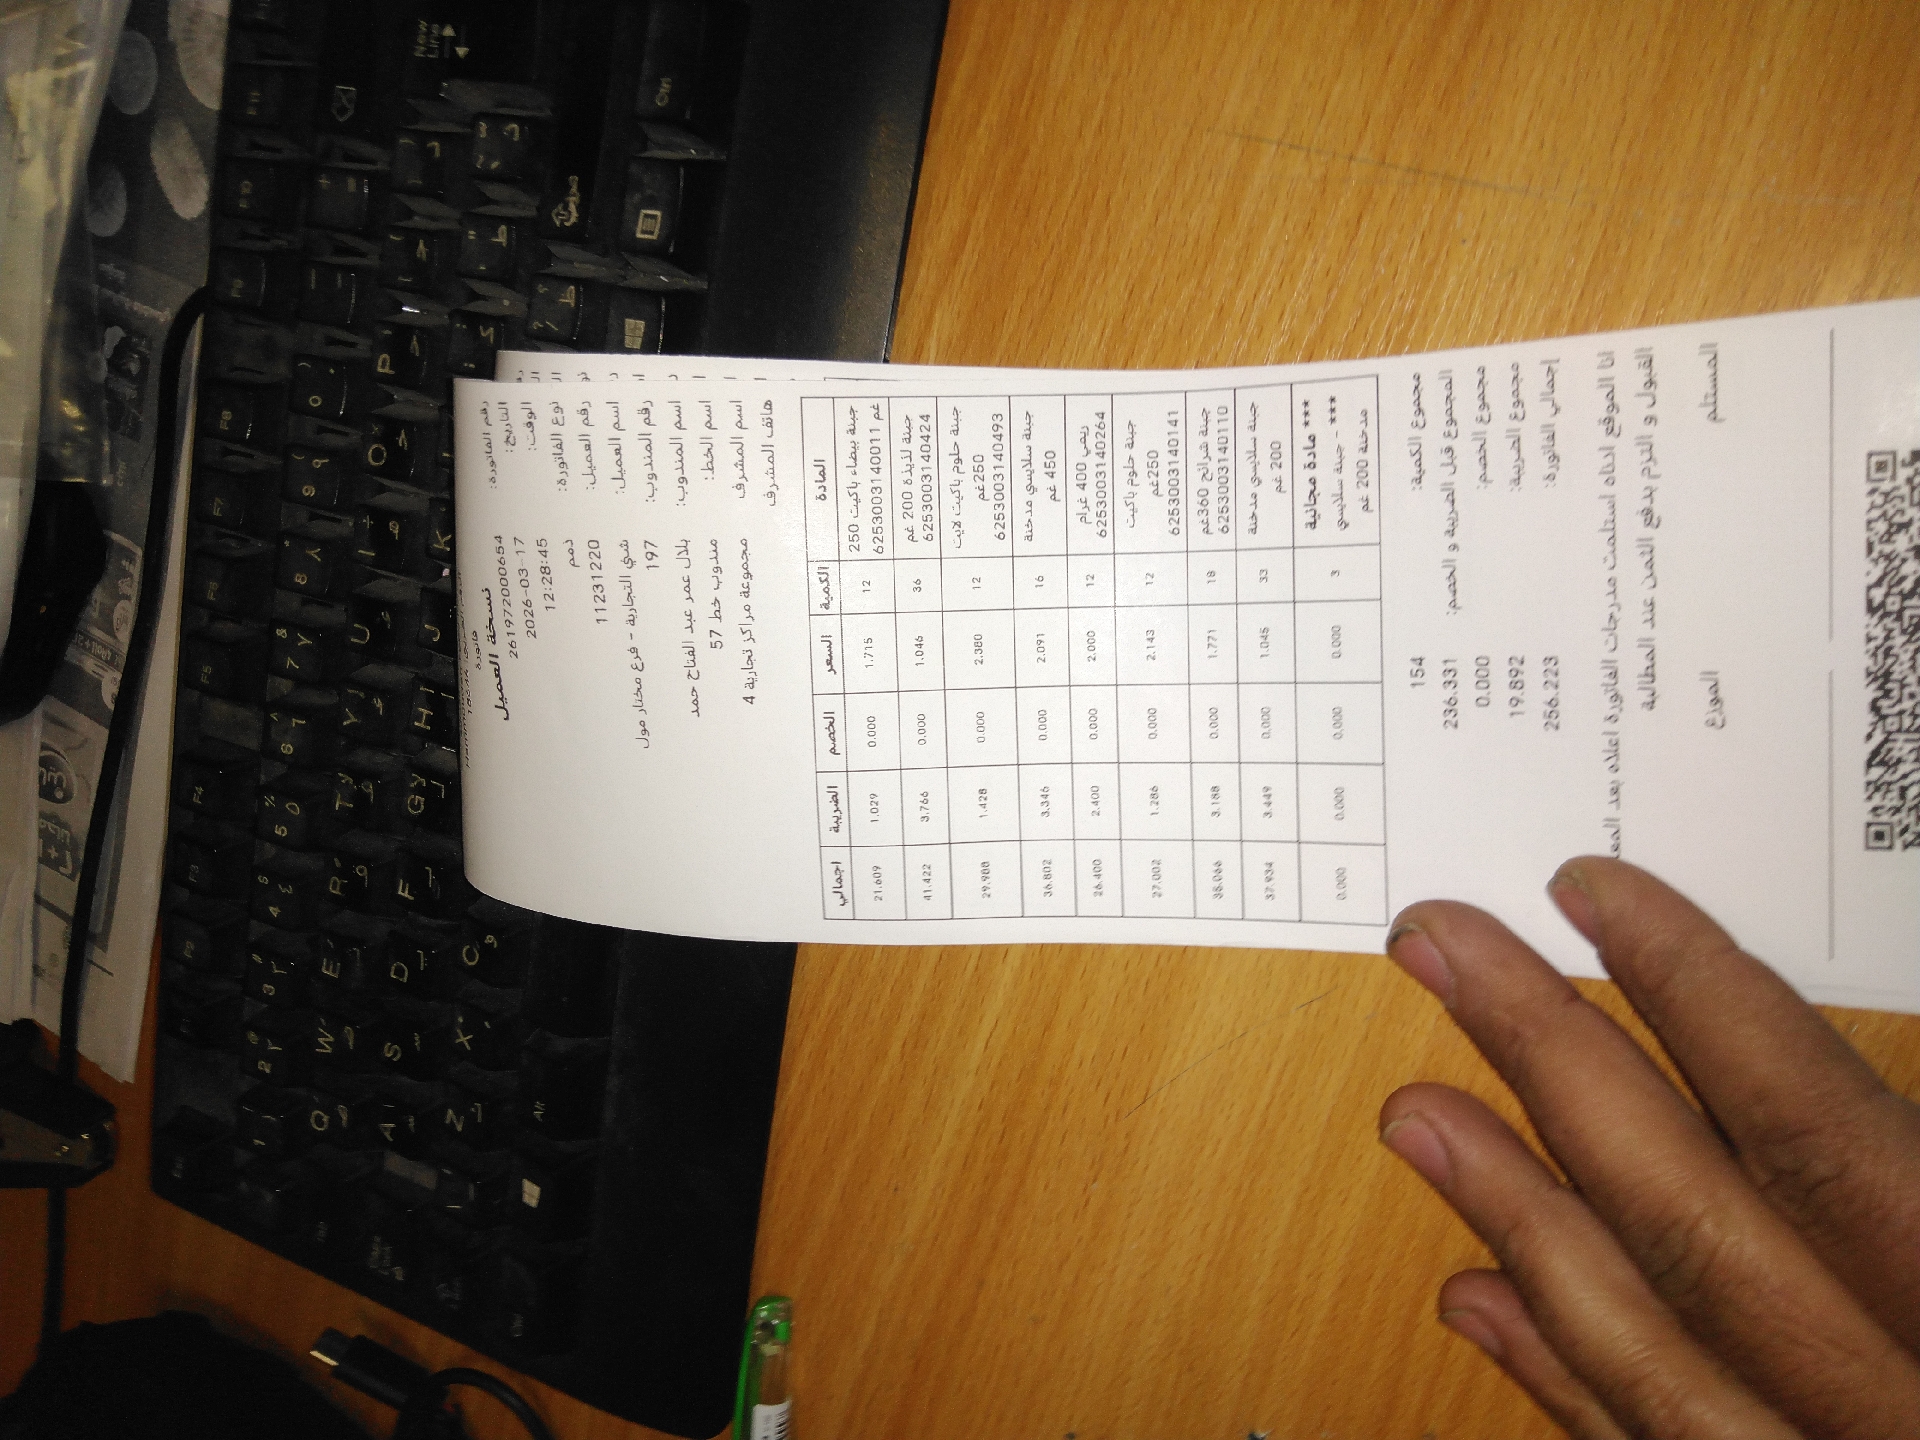 فاتورة
نسخة العميل
رقم الفاتورة: 261972000654
التاريخ: 2026-03-17
الوقت: 12:28:45
نوع الفاتورة: ذمم
رقم العميل: 11231220
اسم العميل: شي التجارية - فرع مختار مول
رقم المندوب: 197
اسم المندوب: بلال عمر عبد الفتاح حمد
اسم الخط: مندوب خط 57
اسم المشرف مجموعة مراكز تجارية 4
هاتف المشرف
المادة الكمية السعر الخصم الضريبة اجمالي
جبنة بيضاء باكيت 250 غم 6253003140011 12 1.715 0.000 1.029 21.609
جبنة لذيذة 200 غم 6253003140424 36 1.046 0.000 3.766 41.422
جبنة حلوم باكيت لايت 250غم 6253003140493 12 2.380 0.000 1.428 29.988
جبنة سلايسي مدخنة 450 غم 16 2.091 0.000 3.346 36.802
ريمي 400 غرام 6253003140264 12 2.000 0.000 2.400 26.400
جبنة حلوم باكيت 250غم 6253003140141 12 2.143 0.000 1.286 27.002
جبنة شرائح 360غم 6253003140110 18 1.771 0.000 3.188 35.066
جبنة سلايسي مدخنة 200 غم 33 1.045 0.000 3.449 37.934
*** مادة مجانية *** - جبنة سلايسي مدخنة 200 غم 3 0.000 0.000 0.000 0.000
مجموع الكمية: 154
المجموع قبل الضريبة و الخصم: 236.331
مجموع الخصم: 0.000
مجموع الضريبة: 19.892
اجمالي الفاتورة: 256.223
انا الموقع ادناه استلمت مدرجات الفاتورة اعلاه بعد
القبول و التزم بدفع الثمن عند المطالبة
المستلم الموزع